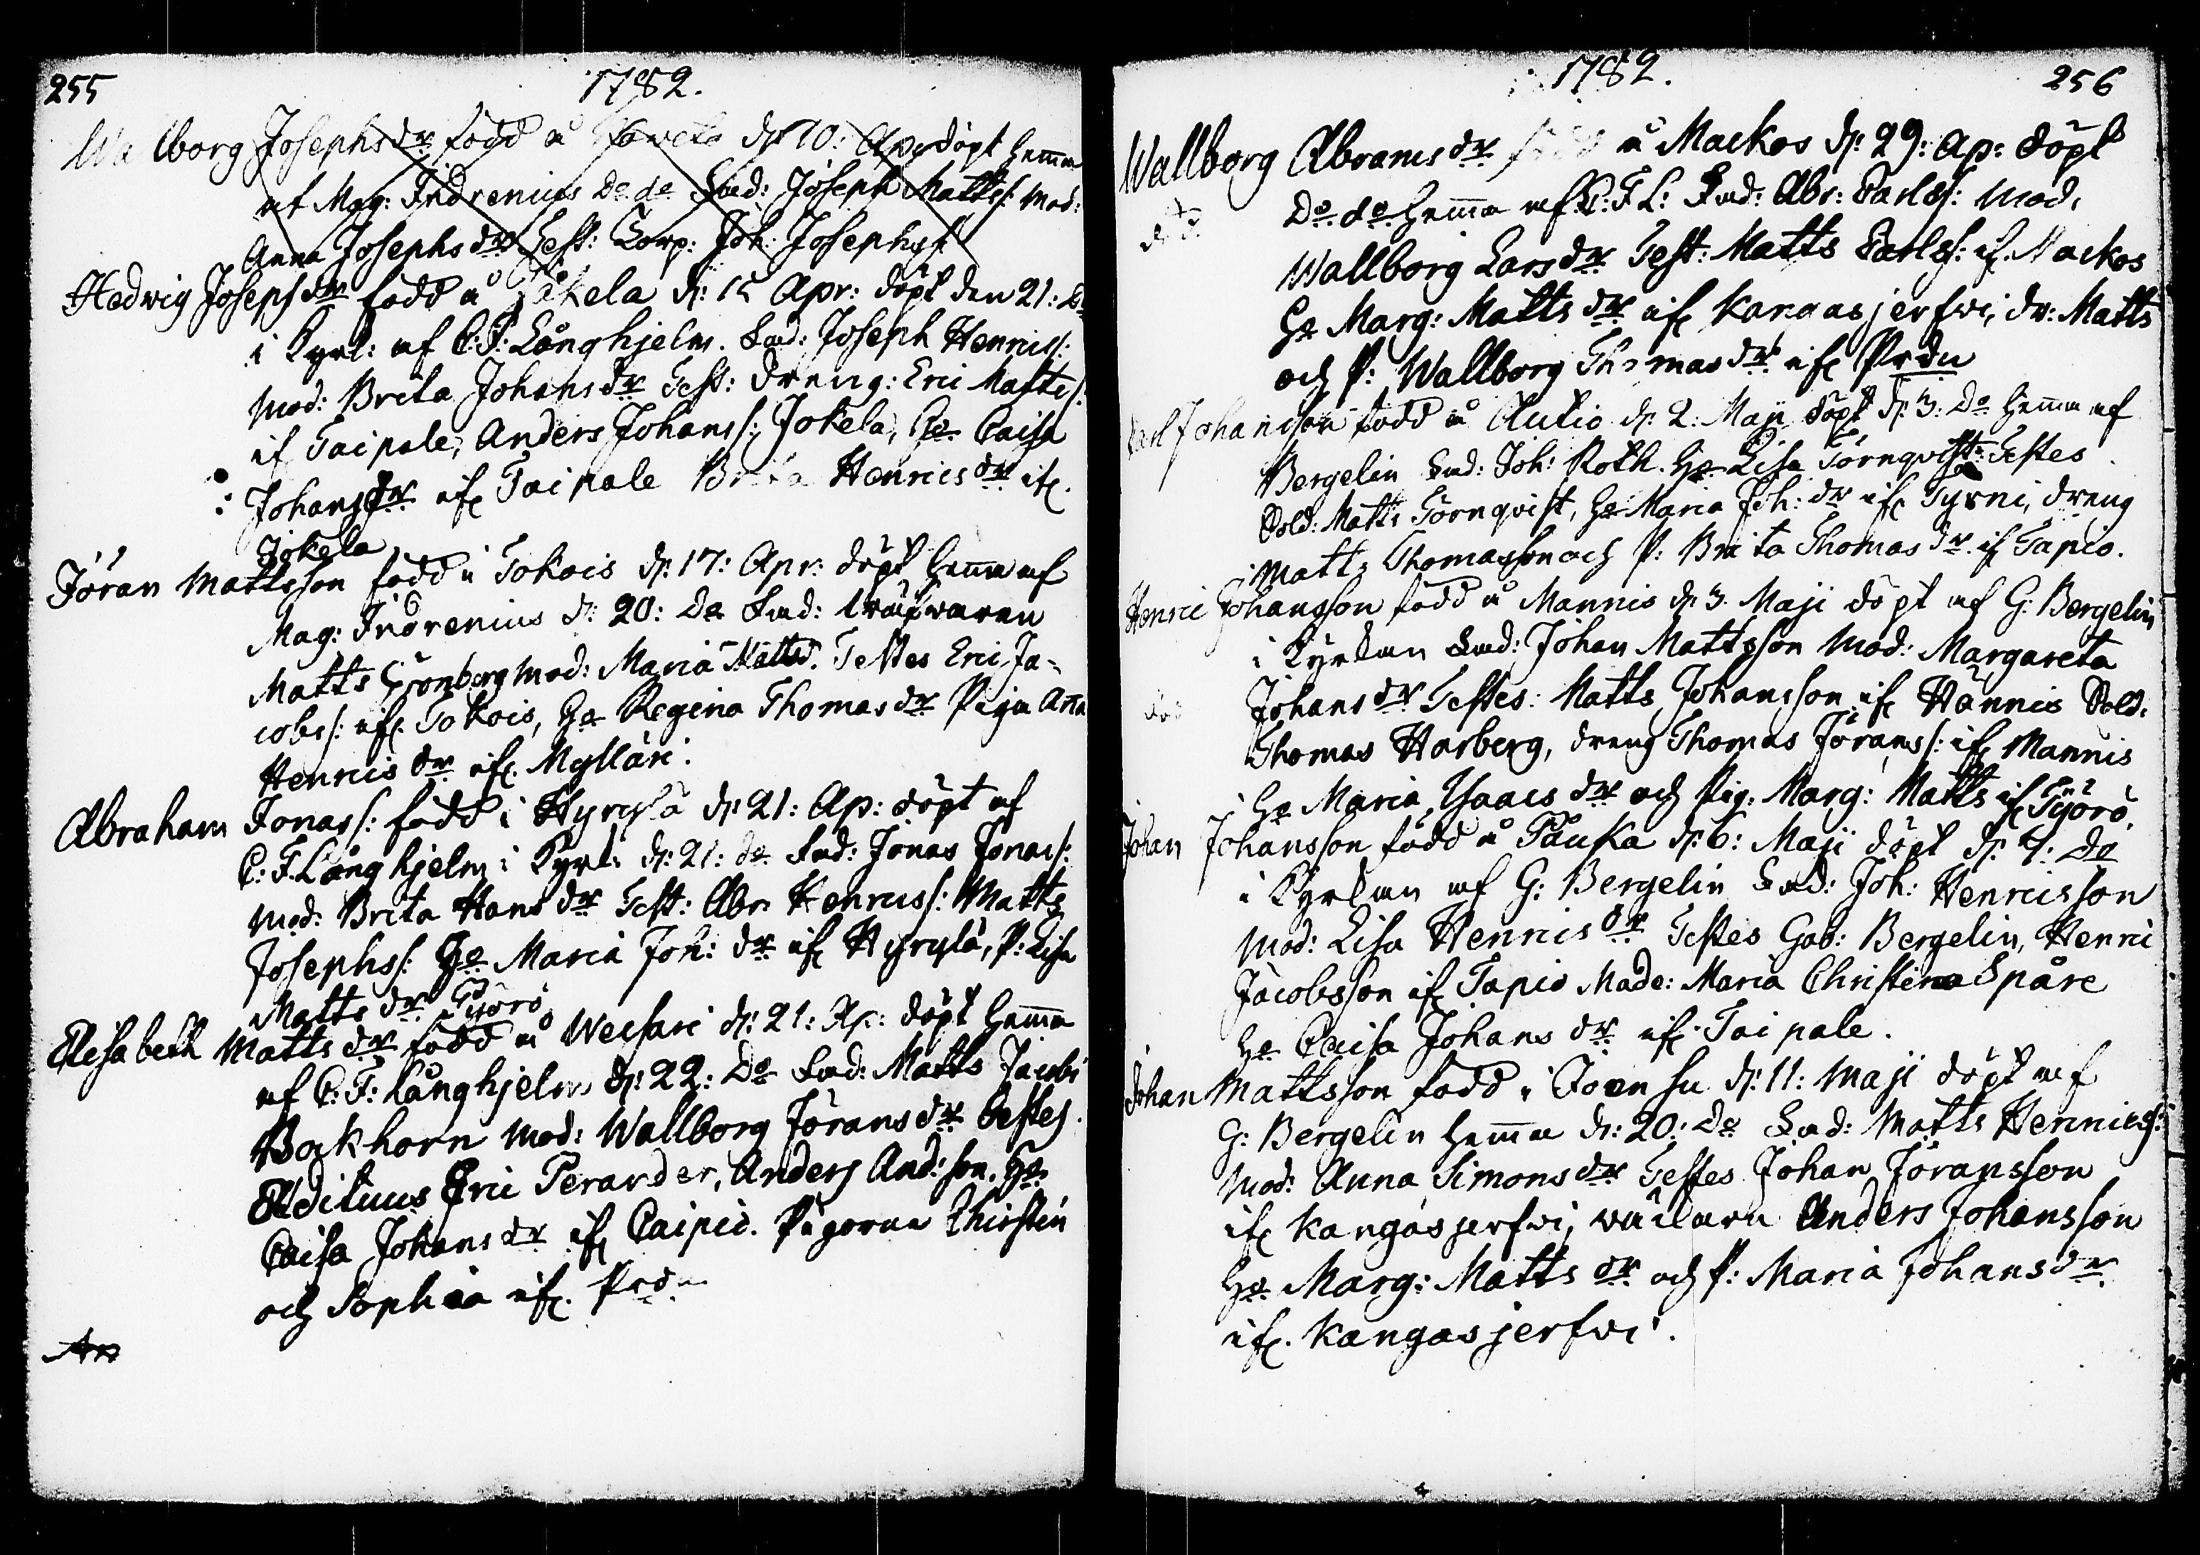 255
1782.
Wallborg Josephs dr född å d: 10: Apr döpt hemma
af Mag: Indrenius Do de Fad: Joseph Mattss: Mod:
Anna Josephs dr Test: Corp: Joh: Josephss:
Hedwig Josephs dr född å Jokela d: 15 Apr: döpt den 21: Do
i Kyrk: af C: F: Långhjelm. Fad: Joseph Henricss:
Mod: Brita Johans dr Test: dreng: Eric Mattss:
if Taipale, Anders Johanss: Jokela, Ho Caisa
Johans dr if Taipale Brita Henrics dr if.
Jokela
Jöran Mattsson född i Tokois d: 17: Apr: döpt hemma af
Mag: Indrenius d: 20: Do Fad:
Matts Grönberg Mod: Maria Mattsd. Testes Eric Ja=
cobss: if. Tokois, Ho Regina Thomas dr Piga Ana
Henrics dr if. Mylläri.
Abraham Jonass: född i Hyrylä d: 21: Ap: döpt af
C: F. Långhjelm i Kyrk: d: 21: do Fad: Jonas Jonass:
Mod: Brita Hans dr Test: Abr: Henricss: Matts
Josephss: Ho Maria Joh: dr if Hyrylä, P: Lisa
Matts dr Työrö
Elisabeth Matts dr född å Weisari d: 21: Ap: döpt hemma
af C: F: Långhjelm d: 22: Do Fad: Matts Jacobs
Bockhorn Mod: Wallborg Jörans dr Testes.
Ædituus Eric Perander, Anders And: son, Ho
Caisa Johans dr if Caipio. Pigorna Chirstin
och Sophia if. Prdn
An
1782.
256
Wallborg Abrams dr å Mackos d: 29: Ap: döpt
Do do hemma af C: F L: Fad: Abr: Carlss: Mod:
Wallborg Lars dr Test: Matts Carlss: if. Mackos
Ho Marg: Matts dr if Kangasjerfwi, dr: Matts
och P: Wallborg Thomas dr if Prdn
Carl Johansson född å Autio d: 2: Maji döpt d: 3: Do hemma af
Bergelin Fad: Joh: Roth. Ho Lisa Törnqvist: Testes
Sold: Matts Törnqvist, Ho Maria Joh: dr if Tyrni, dreng
Matts Thomasson och P: Brita Thomas dr if Tapio.
Henric Johansson född å Mannis d: 3. Maji döpt af G: Bergelin
i Kyrkan Fad: Johan Mattsson Mod: Margareta
Johans dr Testes: Matts Johansson if Hannis Sold:
Thomas Harberg, dreng Thomas Jöranss: if Mannis
Ho Maria Ysaacs dr och Pig: Marg: Matts if Työrö.
Johan Johansson född å Pauka d: 6: Maji döpt d: 7: Do
i Kyrkan af G: Bergelin Fad: Joh: Henricsson
Mod: Lisa Henrics dr Testes Gab: Bergelin, Henric
Jacobsson if Tapio Made: Maria Christina Spåre
Ho Caisa Johans dr if. Taipale.
Johan Mattsson född i Joensu d: 11: Maji döpt af
G: Bergelin hemma d: 20: Do Fad: Matts Henricss:
Mod: Anna Simons dr Testes Johan Jöransson
if Kangasjerfwi, Anders Johansson
Ho Marg: Matts dr och P: Maria Johans dr
if. Kangasjerfwi.